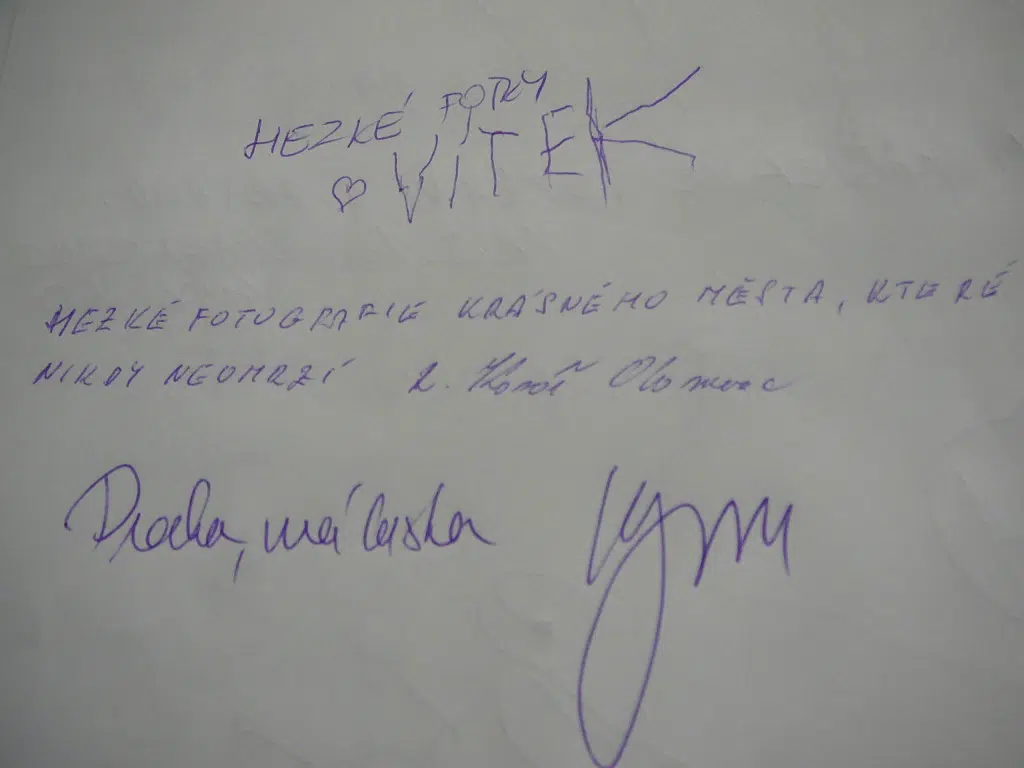 HEZKÉ FOTKY
♡ VÍTEK
HEZKÉ FOTOGRAFIE KRÁSNÉHO MĚSTA, KTERÉ
NIKDY NEOMRZÍ Olomouc
Praha, má láska